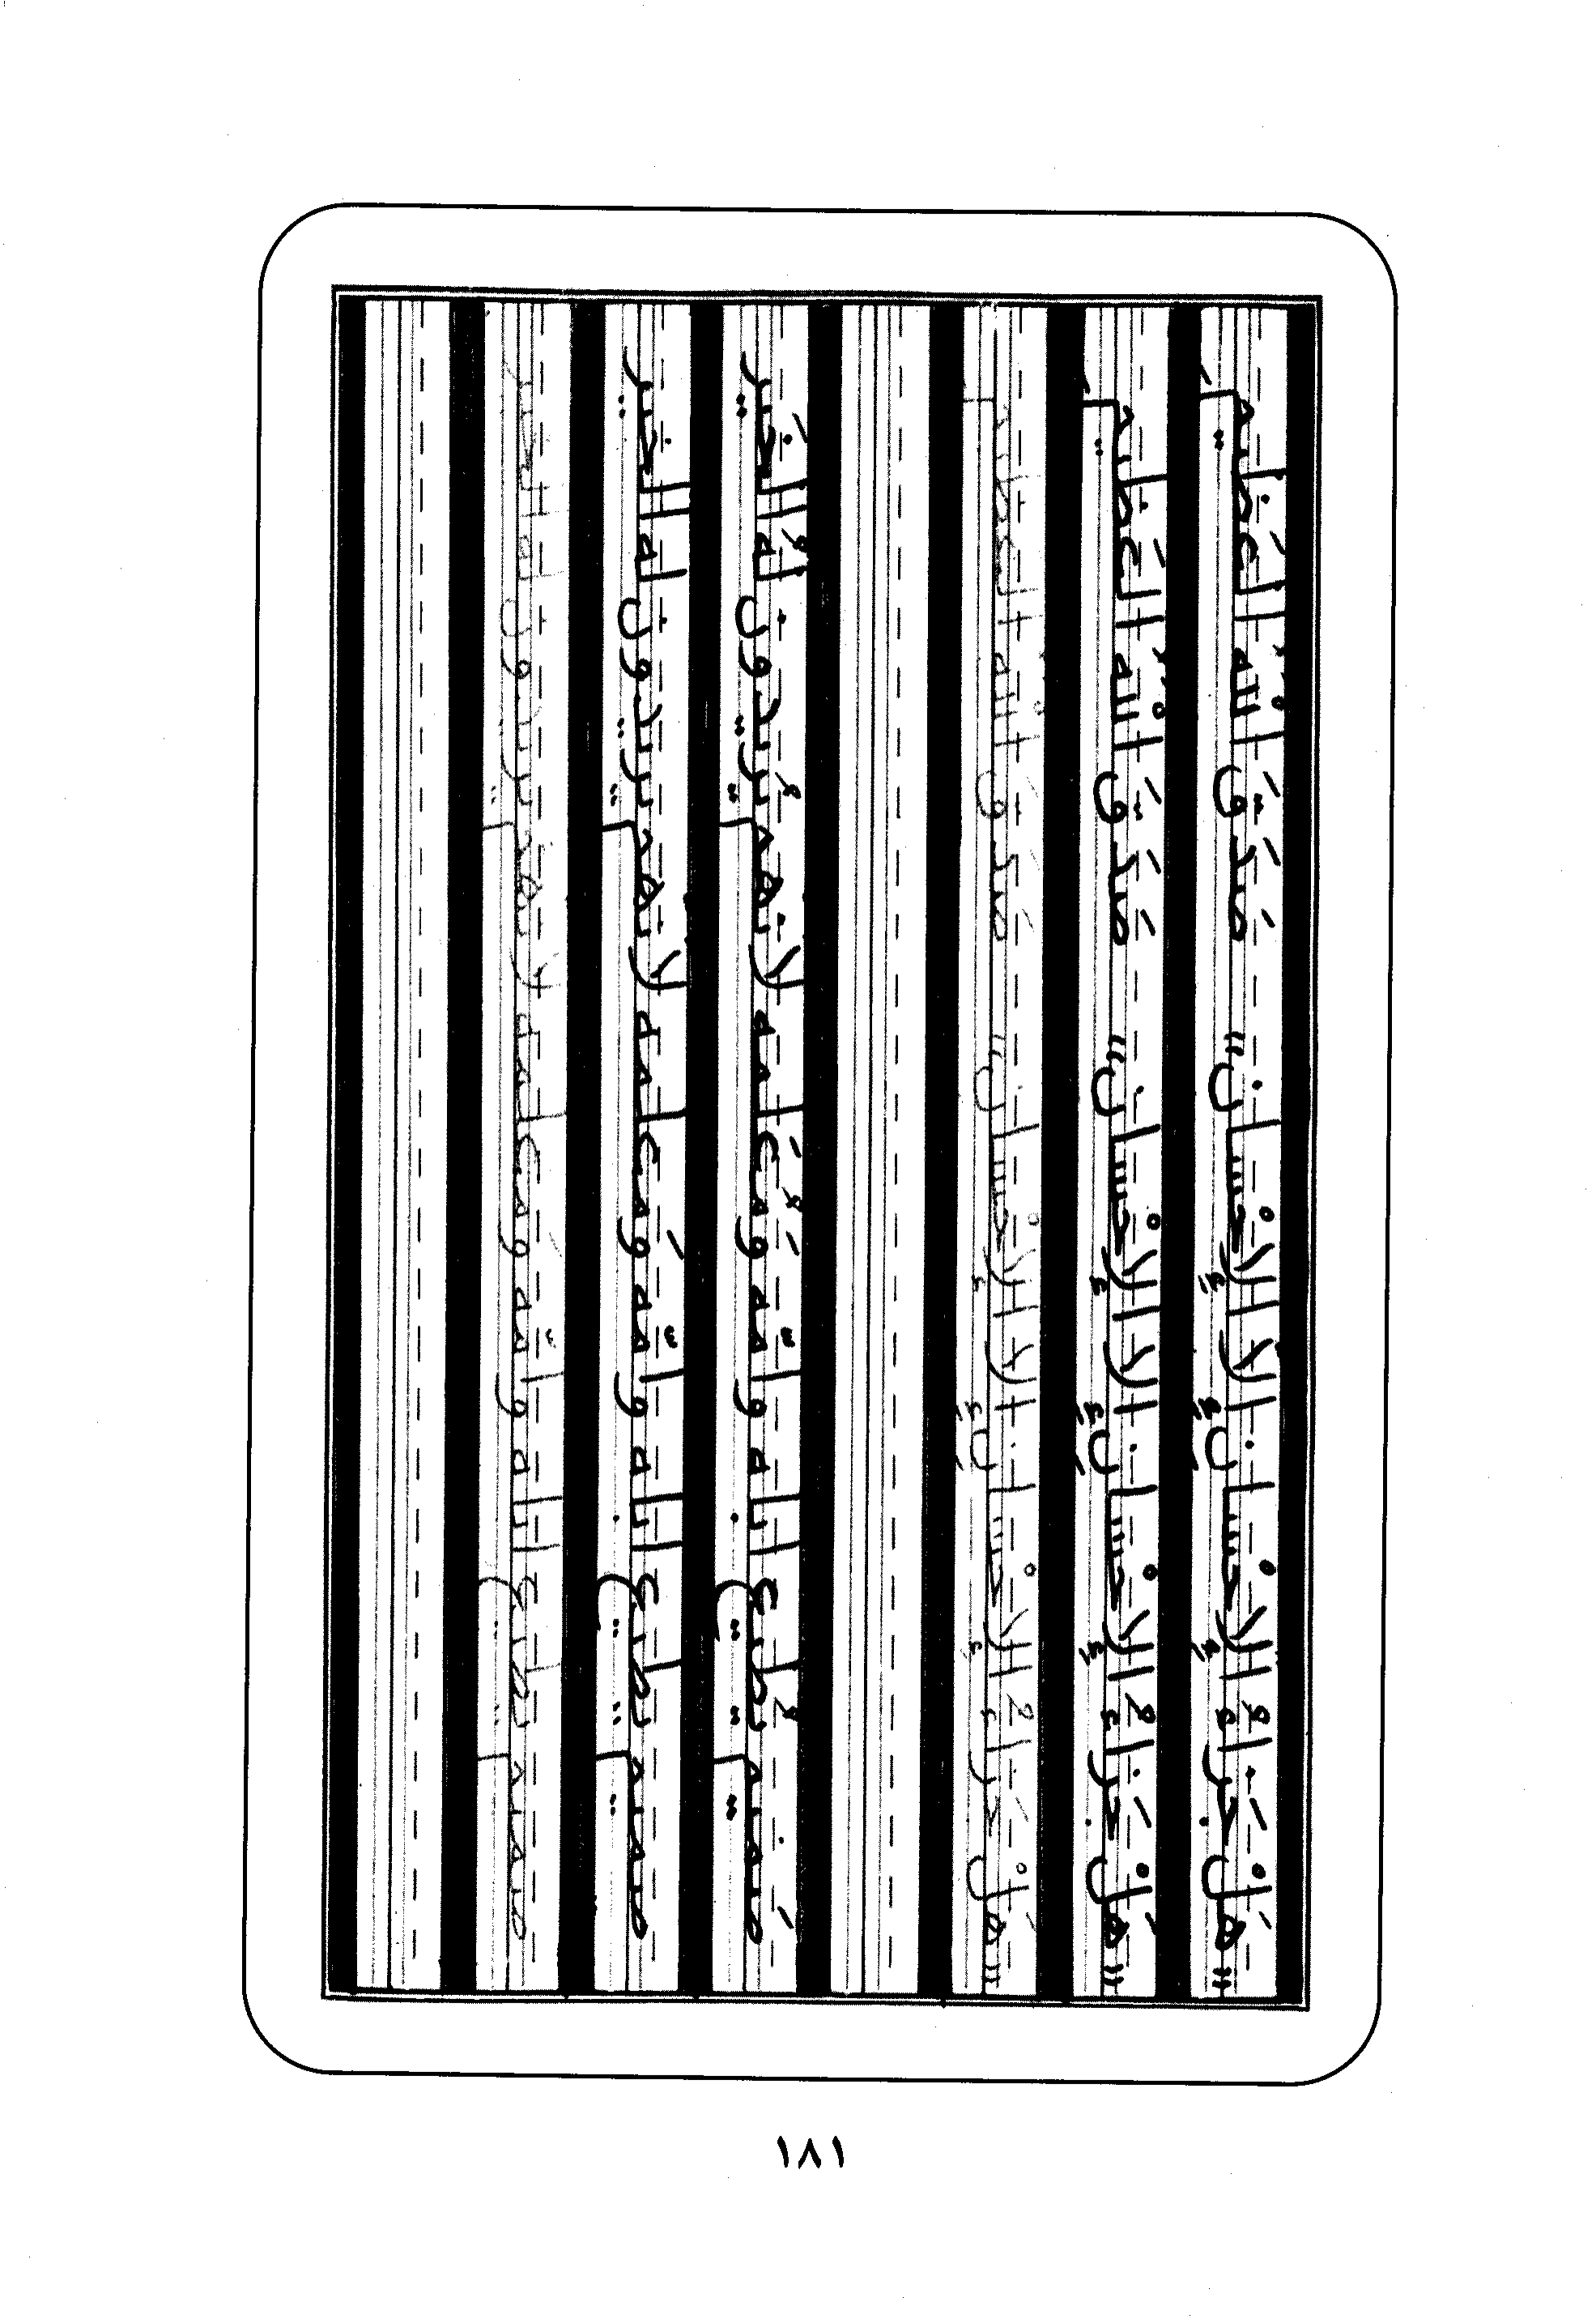 "هَلْ جَزَاءُ الإِحْسَانِ إِلاَّ الإِحْسَانُ" صَدَقَ اللهُ الْعَظِيم
"هَلْ جَزَاءُ الإِحْسَانِ إِلاَّ الإِحْسَان" صَدَقَ اللهُ العَظيم
"هَلْ جَزَاءُ الإِحْسَانِ إِلاَّ الإحْسَان" صدق الله العظيم
يُطيع اباه وامّه وَمُعَلمه لانهم يُريدون لهُ الخَير
يطيع اباه وامّه وَمعلمه لانهم يريدون له الخير
يطيع اباه وامّه ومعلمه لانهم يريدون له الخير
١٨١